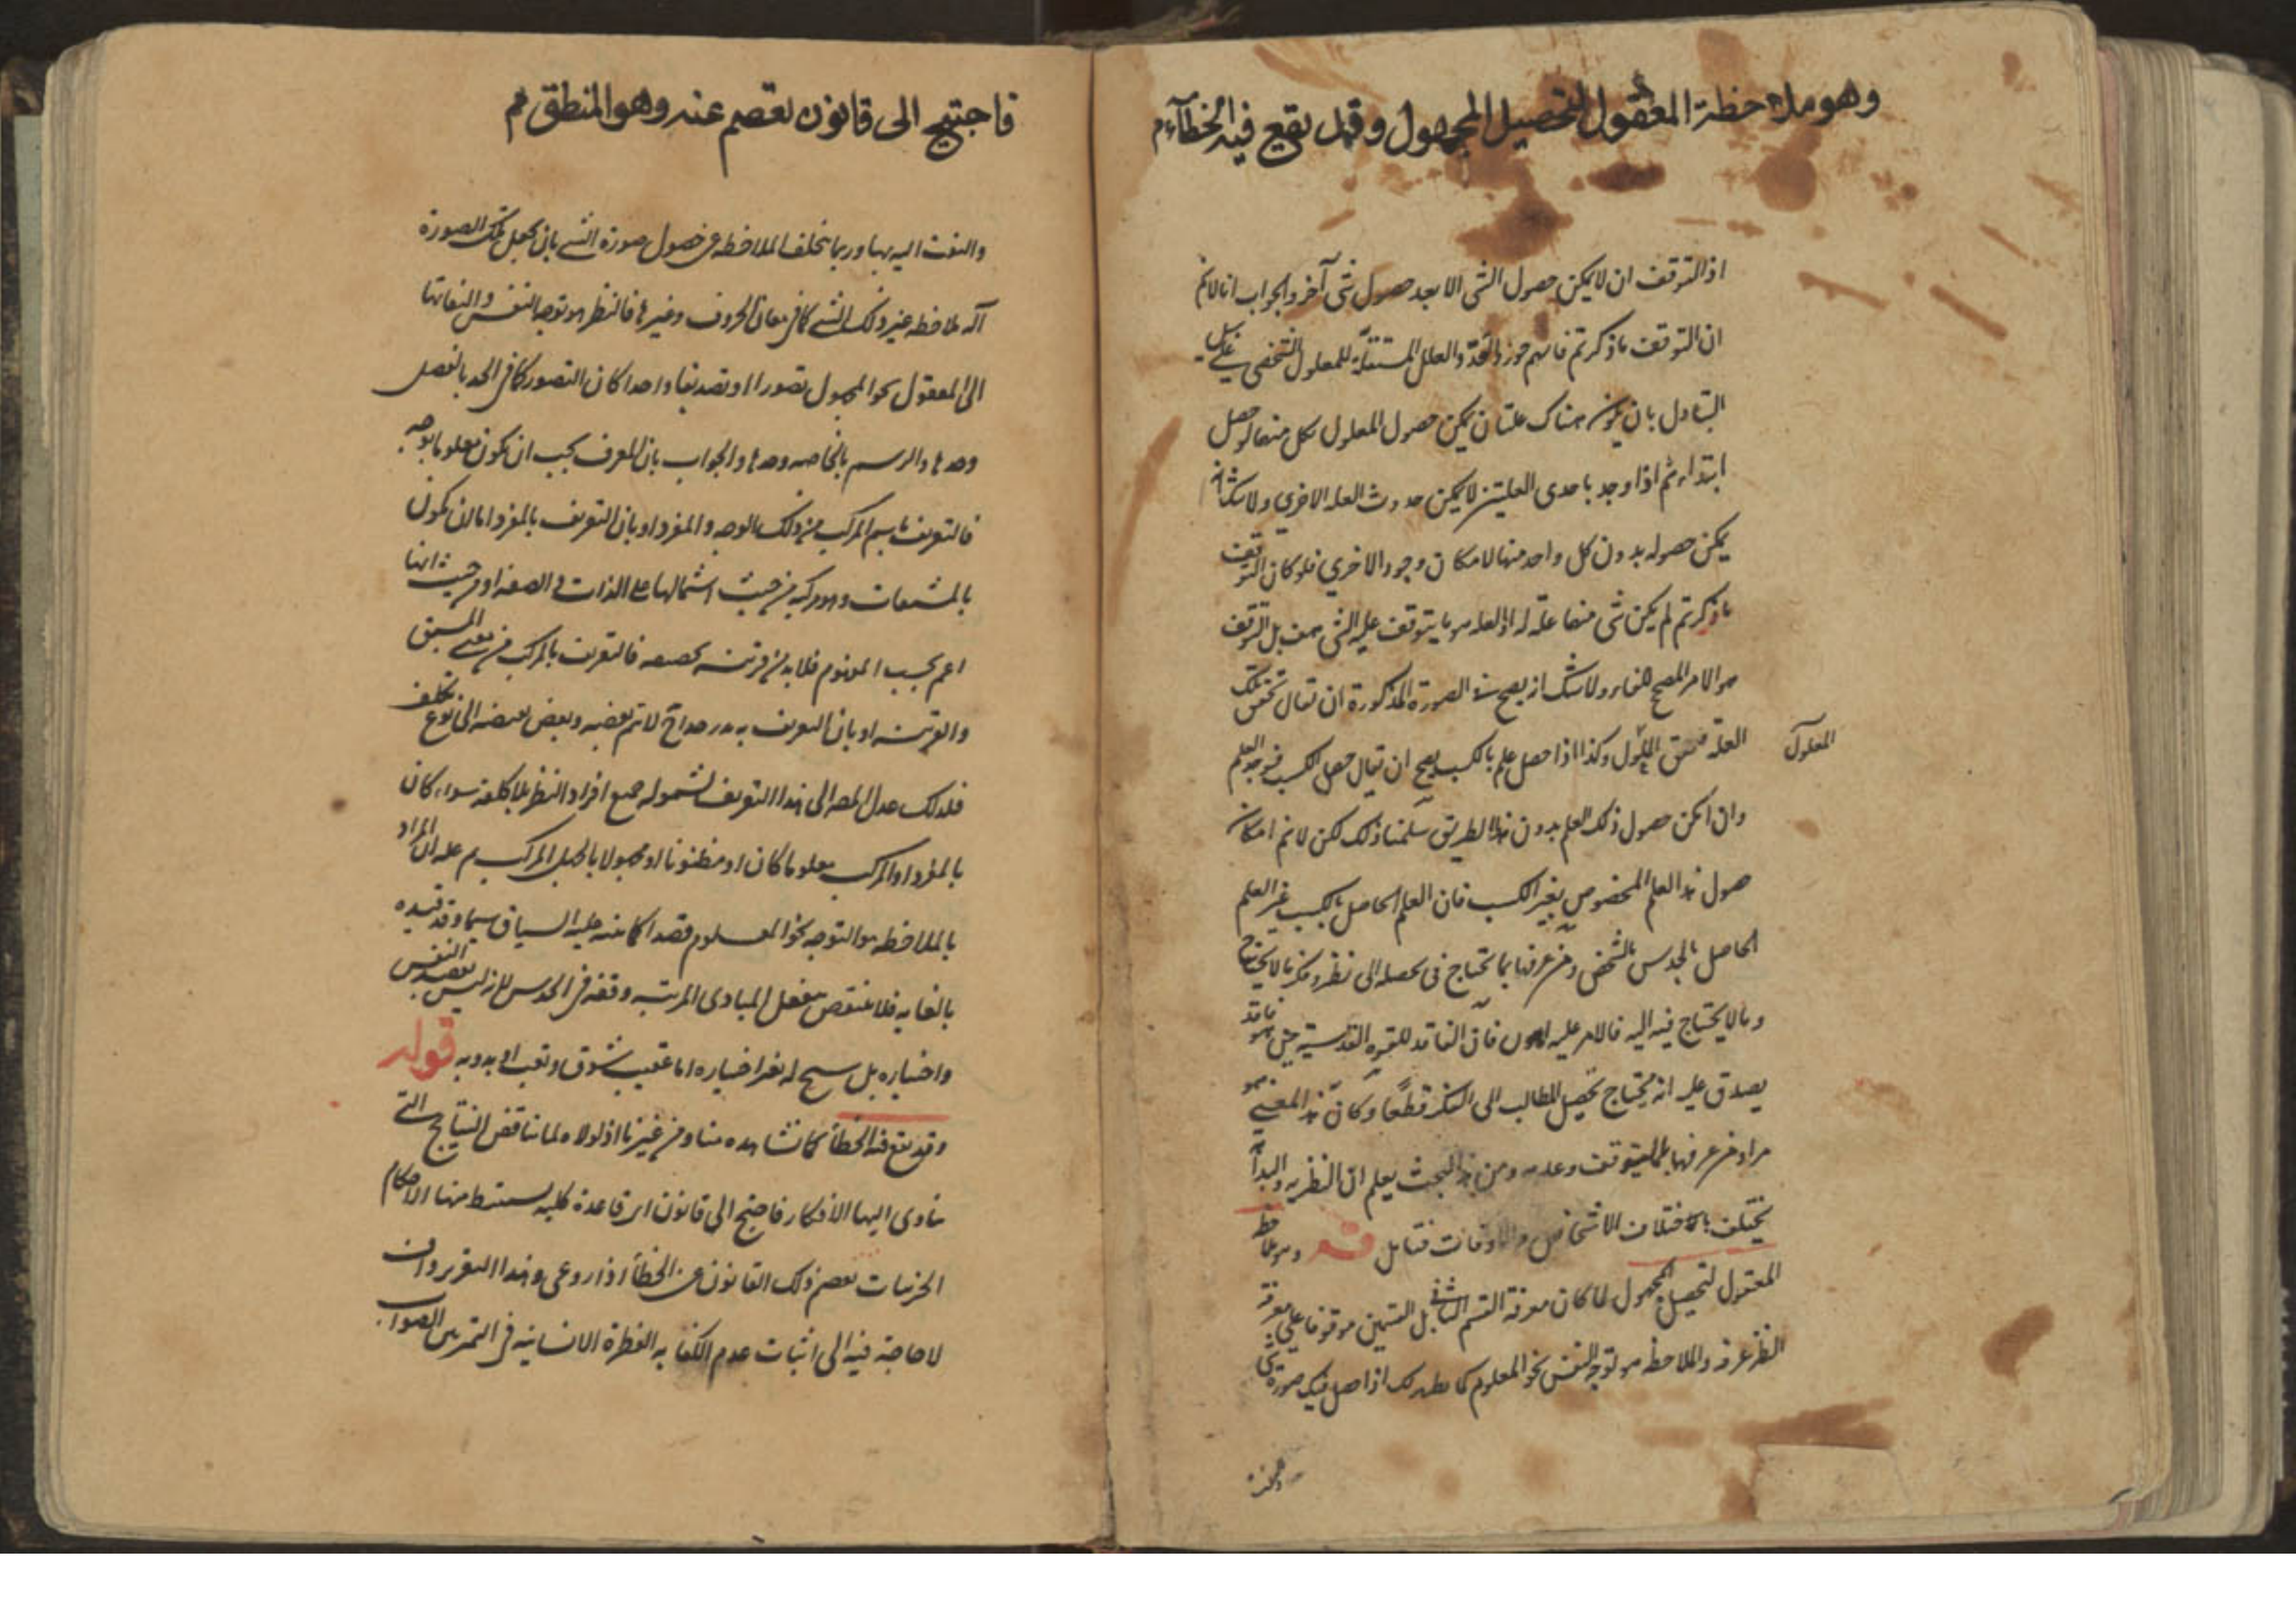 وهو ملاحظة المعقول لتحصيل المجهول وقد يقع فيه الخطاء م
اذ التوقف ان لا يمكن حصول الشئ الا بعد حصول شئ آخر والجواب انا لا نم
ان التوقف ما ذكرتم فانهم جوزوا تعدد العلل المستقلة للمعلول الشخصي على سبيل
التبادل بان يكون هناك علتان يمكن حصول المعلول بكل منهما لو حصل
ابتداء ثم اذا وجد باحدى العلتين لا يمكن حدوث العلة الاخري ولا شك انه
يمكن حصوله بدون كل واحد منهما لامكان وجود الاخري فلو كان التوقف
ما ذكرتم لم يكن شئ منهما علة له اذ العلة هو ما يتوقف عليه الشئ هف بل التوقف
هو الامر المصحح للفاء ولا شك انه يصح في الصورة المذكورة ان تقال تحقق تلك
العلة فتحقق المعلول وكذا اذا حصل علم بالكسب يصح ان يقال حصل الكسب فوجد العلم
المعلول
وان امكن حصول ذلك العلم بدون هذا الطريق سلمنا ذلك لكن لا نم امكان
حصول هذا العلم المخصوص بغير الكسب فان العلم الحاصل بالكسب غير العلم
الحاصل بالحدس بالشخص ومن عرفها بما يحتاج في تحصيله الى نظر وفكر وما لا يحتاج
وما لا يحتاج فيه اليه فالامر عليه اهون فان الفاقد للقوة القدسية حين هو فاقد
يصدق عليه انه يحتاج تحصيل المطالب الى الفكر قطعا وكان هذا المعنى هو
مراد من عرفها بالتوقف وعدمه ومن هذا البحث يعلم ان النظرية والبداهة
يختلف باختلاف الاشخاص والاوقات فتامل قوله وهو ملاحظة
المعقول لتحصيل المجهول لما كان معرفة القسم الثاني بل القسمين موقوفا على معرفة
النظر عرفه والملاحظة هو توجه النفس نحو المعلوم كما يظهر لك اذا حصل فيك صورة شئ
والتفت
فاحتيج الى قانون يعصم عنه وهو المنطق م
والتفت اليه بها وربما يتخلف الملاحظة عن حصول صورة الشئ بان يجعل تلك الصورة
آلة لملاحظة غير ذلك الشئ كما في معاني الحروف وغيرها فالنظر هو توجه النفس والتفاتها
الى المعقول نحو المجهول تصورا او تصديقا واحدا كان التصور كما في الحد بالفصل
وحدها والرسم بالخاصة وحدها والجواب بان المعرف يجب ان يكون معلوما بوجه
فالتعريف باسم المركب من ذلك الوجه والمفرد او بان التعريف بالمفرد انما يكون
بالمشتقات وهو مركبة من حيث اشتمالها على الذات والصفة او من حيث انها
اعم بحسب المفهوم فلا بد من قرينة مخصصة فالتعريف بالمركب من معنى المشتق
والقرينة او بان التعريف به مدرج لا تم بعضه وبعض بعضه الى نوع تكلف
فلذلك عدل المصه الى هذا التعريف لشموله جميع افراد النظر بلا كلفة سواء كان
بالمفرد او المركب معلوما كان او مظنونا او مجهولا بالجهل المركب ثم علم ان المراد
بالملاحظة هو التوجه نحو المعلوم قصدا كما ينبه عليه السياق سيما وقد قيده
بالغاية فلا ينتقض بنقل المبادي المرتبة دفعة في الحدس لانه ليس بقصد النفس
واختياره بل سنح له بغير اختياره اما عقيب شوق وتعب او بدونه قوله
وقد يقع فيه الخطأ كما نشاهده منا ومن غيرنا اذ لولاه لما تناقض النتايج التي
تنادى اليها الافكار فاحتيج الى قانون اى قاعدة كلية يستنبط منها الاحكام
الجزئيات يعصم ذلك القانون عن الخطأ اذا روعي وهذا التقرير وان
لا حاجة فيه الى اثبات عدم الكفاية الفطرة الانسانية في التمييز بين الصواب